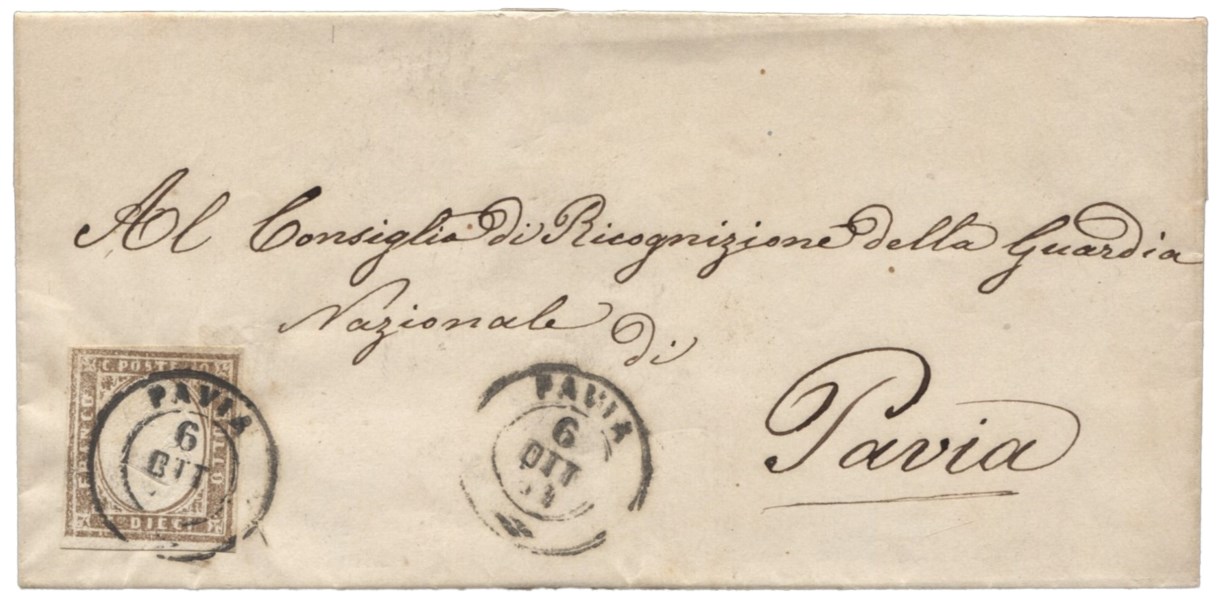 Al Consiglio di Ricognizione della Guardia
Nazionale di
Pavia
C. POSTE 10
FRANCO
BOLLO
DIECI
PAVIA
6
OTT
PAVIA
6
OTT